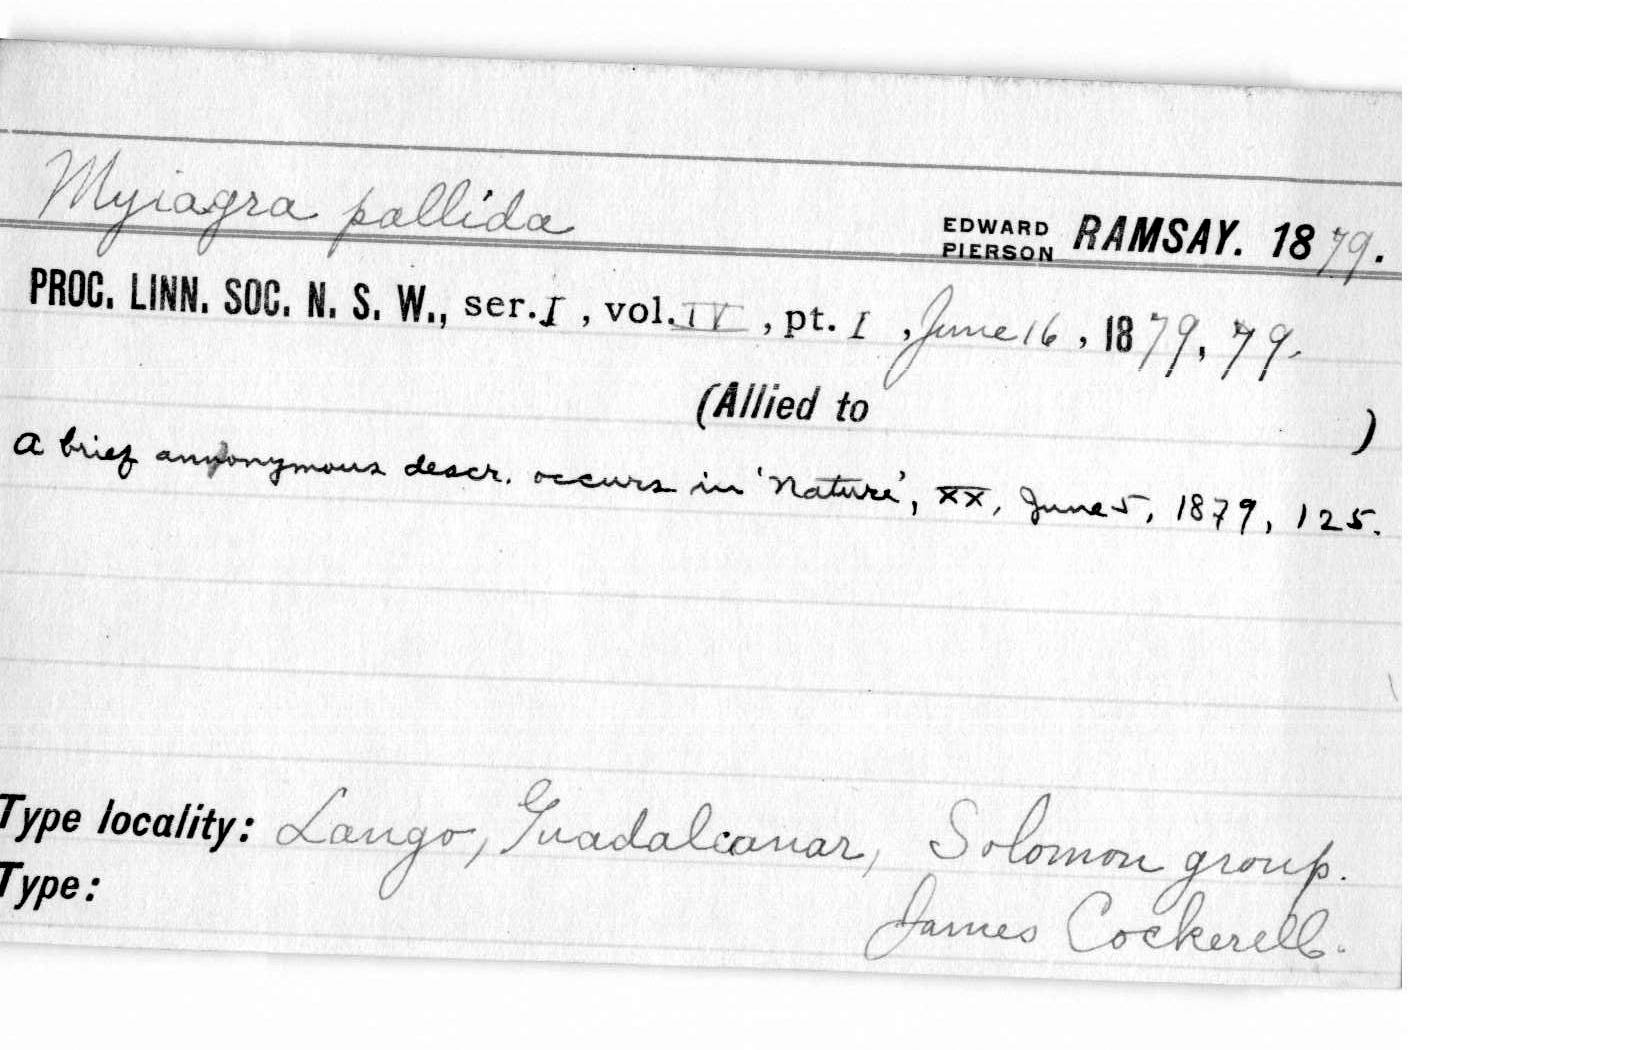 Myiagra pallida EDWARD PIERSON RAMSAY. 1879.
PROC. LINN. SOC. N. S. W., ser. I, vol. IV, pt. I, June 16, 1879, 79.
(Allied to )
a brief annonymous descr. occurs in 'Nature', XX, June 5, 1879, 125.
Type locality: Lango, Guadalcanar, Solomon group.
Type:
James Cockerell.